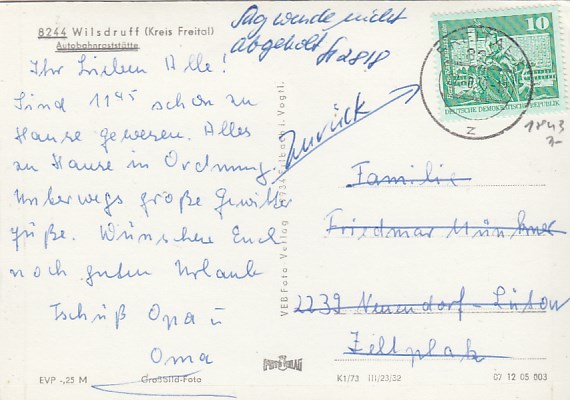 8244 Wilsdruff (Kreis Freital)
Autobahnraststätte
Ihr Lieben Alle!
Sind 11 45 schon zu
Hause gewesen. Alles
zu Hause in Ordnung
Unterwegs große Gewitter
güße. Wünschen Euch
noch guten Urlaub
Tschüß Opa u
Oma
EVP -,25 M
Großbild-Foto
VEB Foto-Verlag
i. Vogtl.
nicht
abgeholt
Zurück
10
DEUTSCHE DEMOKRATISCHE REPUBLIK
z
1843
Familie
Friedmar Münkner
2239 Neuendorf-Lütow
Zeltplatz
K1/73 III/23/32
07 12 05 003